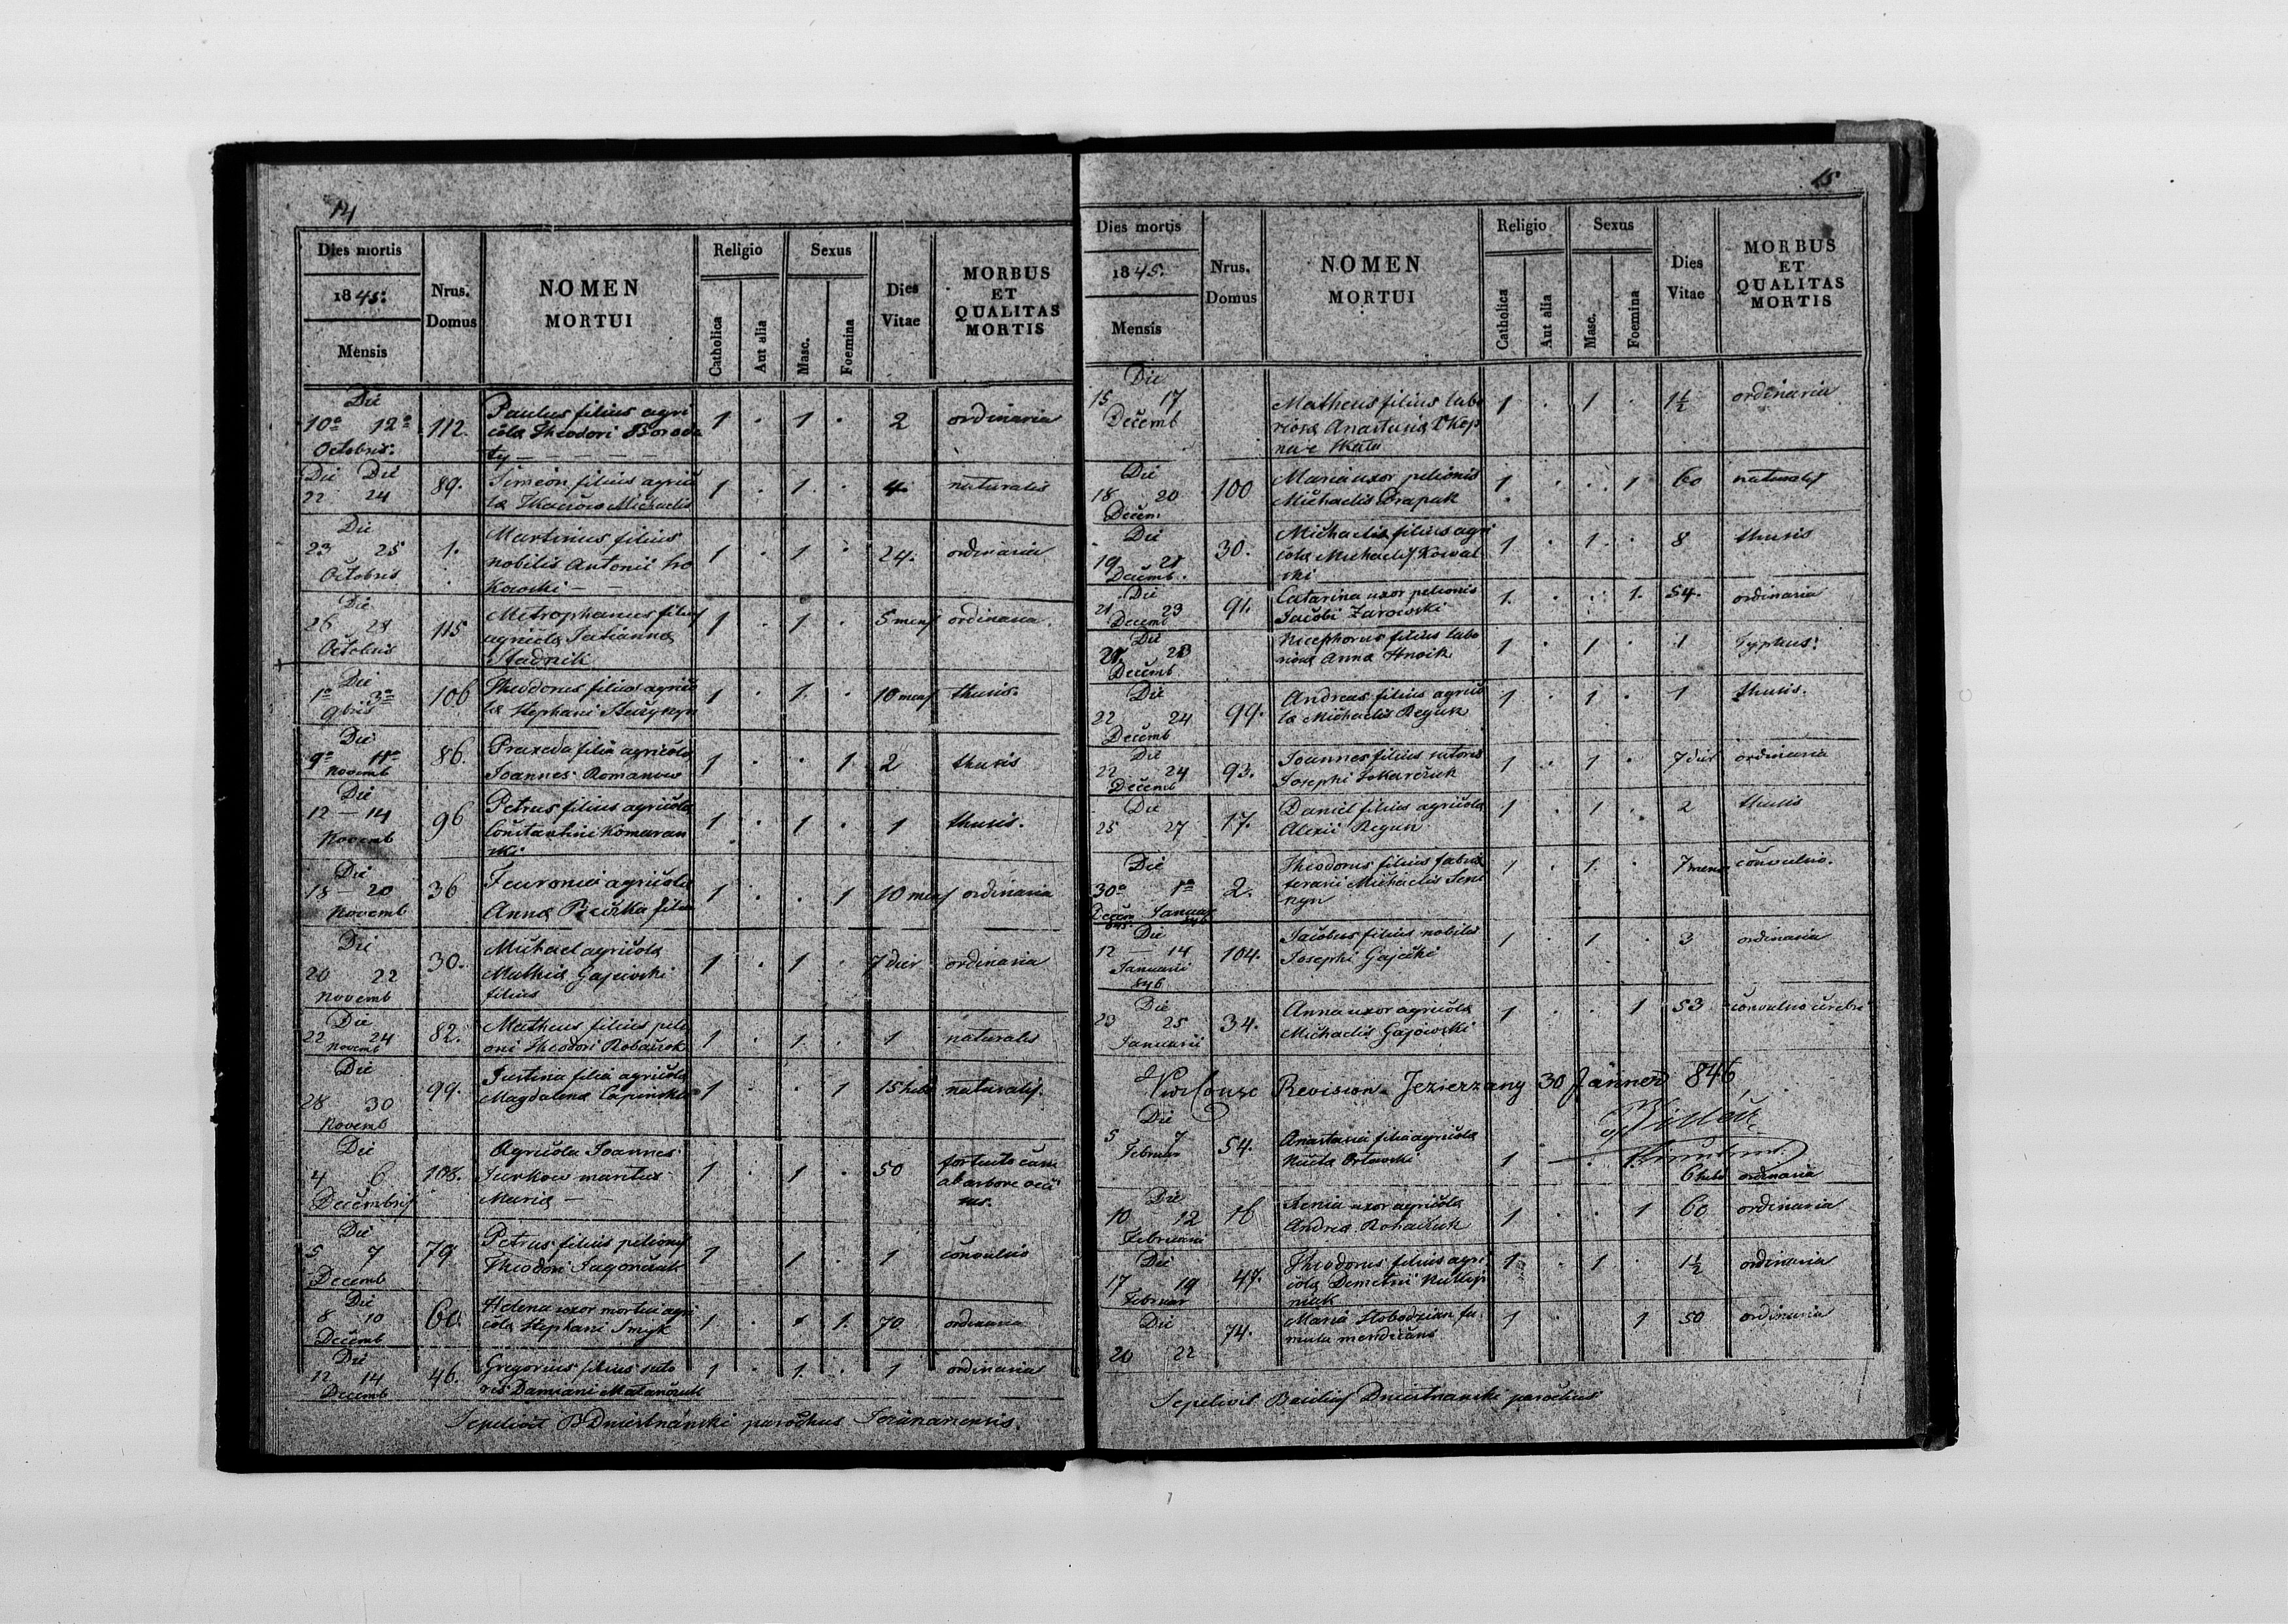 14
Dies mortis
1845.
Mensis
Nrus.
Domus
NOMEN
MORTUI
Religio
Catholica
Aut alia
Sexus
Masc.
Foemina
Dies
Vitae
MORBUS
ET
QUALITAS
MORTIS
Die
10a 12a
Octobris.
112.
Paulus filius agri
colæ Theodori Boroda
ty
1 . 1 . 2 ordinaria
Die Die
22 24
89.
Simeon filius agrico
læ Michaelis
1 . 1 . 4. naturalis
Die
23 25
Octobris
1.
Martinus filius
nobilis Antonii
1 . 1 . 24. ordinaria
Die
26 28
Octobris
115
Mitrophanus filius
agricolæ Tatiannæ
Stadnik
1 . 1 . 5 mens ordinaria.
Die
1a 3a
9bris
106
Theodorus filius agrico
læ Stephani
1 . 1 . 10 mens thusis.
Die
9a 11a
Novemb
86.
Praxeda filia agricolæ
Joannes Romanow
1 . . 1. 2 thusis
Die
12 — 14
Novemb
96
Petrus filius agricolæ
Constantini Komaran
ski
1 . 1 . 1 thusis.
Die
18 — 20
Novemb
36
agricolæ
Annæ filia
1 . . 1 10 mens ordinaria
Die
20 22
Novemb
30.
Michael agricolæ
Mathiæ Gajewski
filius
1 . 1 . 7 dier ordinaria
Die
22 24
Novemb
82.
Matheus filius peli
oni Theodori
1 . 1 . 1 naturalis
Die
28 30
Novemb
99.
Justina filia agricolæ
Magdalenæ
1 . . 1 15 hebd naturalis.
Die
4 6
Decembris
108.
Agricola Joannes
Jurkow maritus
Mariæ
1 . 1 . 50 fortuito casu
ab arbore occi
sus.
Die
5 7
Decemb
79
Petrus filius pelionis
Theodori
1 1 . 1 convulsio
Die
8 10
Decemb
60.
Helena uxor mortui agri
colæ Stephani Smyk
1 . 1. 70 ordinaria
Die
12 14
Decemb
46.
Gregorius filius suto
ris Damiani
1 . 1. . 1 ordinaria
Sepelivit B Dniestrianski parochus
15
Dies mortis
1845.
Mensis
Nrus.
Domus
NOMEN
MORTUI
Religio
Catholica
Aut alia
Sexus
Masc.
Foemina
Dies
Vitae
MORBUS
ET
QUALITAS
MORTIS
Die
15 17
Decemb
Matheus filius labo
riosæ Anastasiæ
1 . 1 . 1½ ordinaria
Die
18 20
Decem.
100
Maria uxor pelionis
Michaelis Drapak
1 . . 1 60 naturalis
Die
19 21
Decemb.
30.
Michaelis filius agri
colæ Michaelis Kowal
ski
1 . 1. . 8 thusis
Die
21 23
Decemb
91.
Catarina uxor pelionis
Jacobi Zarowski
1. . . 1. 54. ordinaria
Die
21 23
Decemb
Nicephorus filius labo
riosæ Annæ Hnoik
1 . 1 . 1 Typhus.
Die
22 24
Decemb
99.
Andreas filius agrico
læ Michaelis Reguk
1 . 1 . 1 thusis.
Die
22 24
Decemb
93.
Joannes filius sutoris
Josephi
1 . 1 . 7 dier ordinaria
Die
25 27
17.
Daniel filius agricolæ
Alexii Regun
1 . 1 . 2 thusis
Die
30a 1a
Decem Januar
846
2.
Theodorus filius
Michaelis
1 . 1. . 7 mens convulsio.
Die
12 — 14
Januarii
846
104.
Jacobus filius nobilis
Josephi Gajecki
1 . 1 . 3 ordinaria
Die
23 25
Januarii
34.
Anna uxor agricolæ
Michaelis Gajowski
1 . . 1 53 convulsio cerebri
Revision Jezierzany 30 Jänner 846
Die
5 7
Februar
54.
Anastasia filia agricolæ
1 . 6 hebd ordinaria
Die
10 12
Februarii
16
Xenia uxor agricolæ
Andreæ Rohaczuk
1 . . 1 60 ordinaria
Die
17 19
Februar
47.
Theodorus filius agri
colæ Demetrii
1 . 1 . 1½ ordinaria
Die
20 22
74.
Maria Slobodzian fa
mula mendicans
1 . 1 50 ordinaria
Sepelivit Basilius Dniestrianski parochus